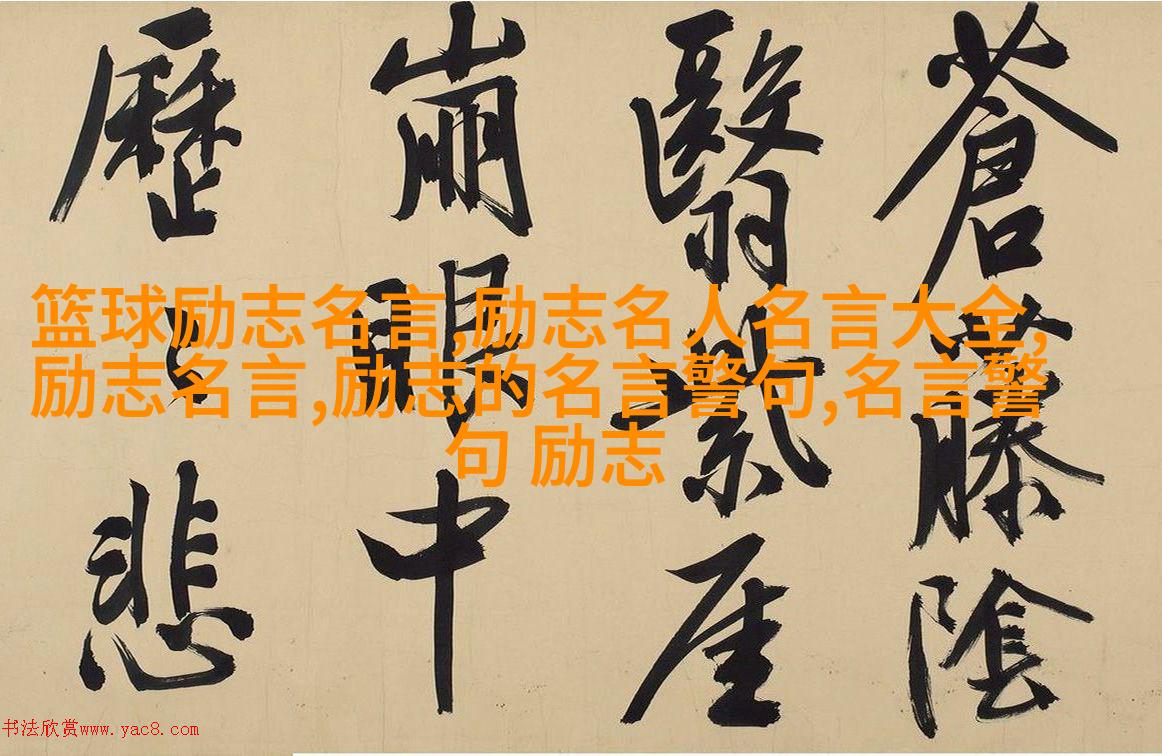 蒼藤陰
翳紫厓
崩眼中
歷々悲
篮球励志名言,励志名人名言大全,
励志名言,励志的名言警句,名言警
句 励志
书法欣赏www.yac8.com